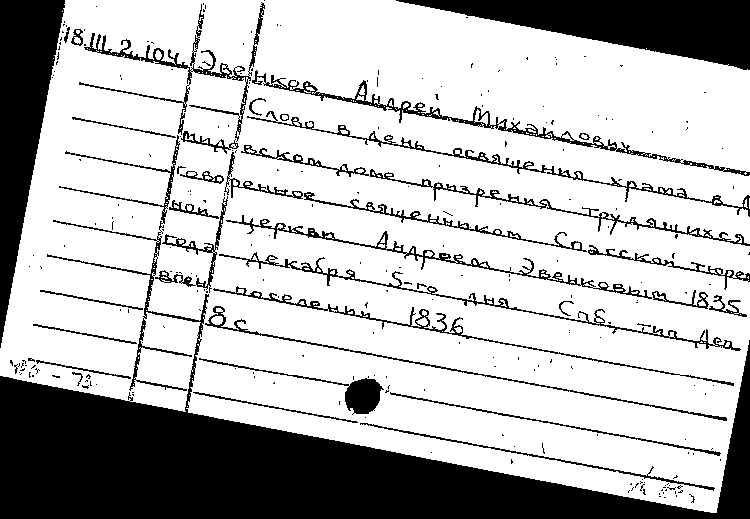 18.III.2.104. Эвенков, Андрей Михайлович
Слово в день освящения храма в Д
мидовском доме призрения трудящихся,
говоренное священником Спасской тюрем
ной церкви Андреем Эвенковым 1835
года декабря 5-го дня. Спб., тип Деп
воен поселений, 1836.
8 с.
- 73